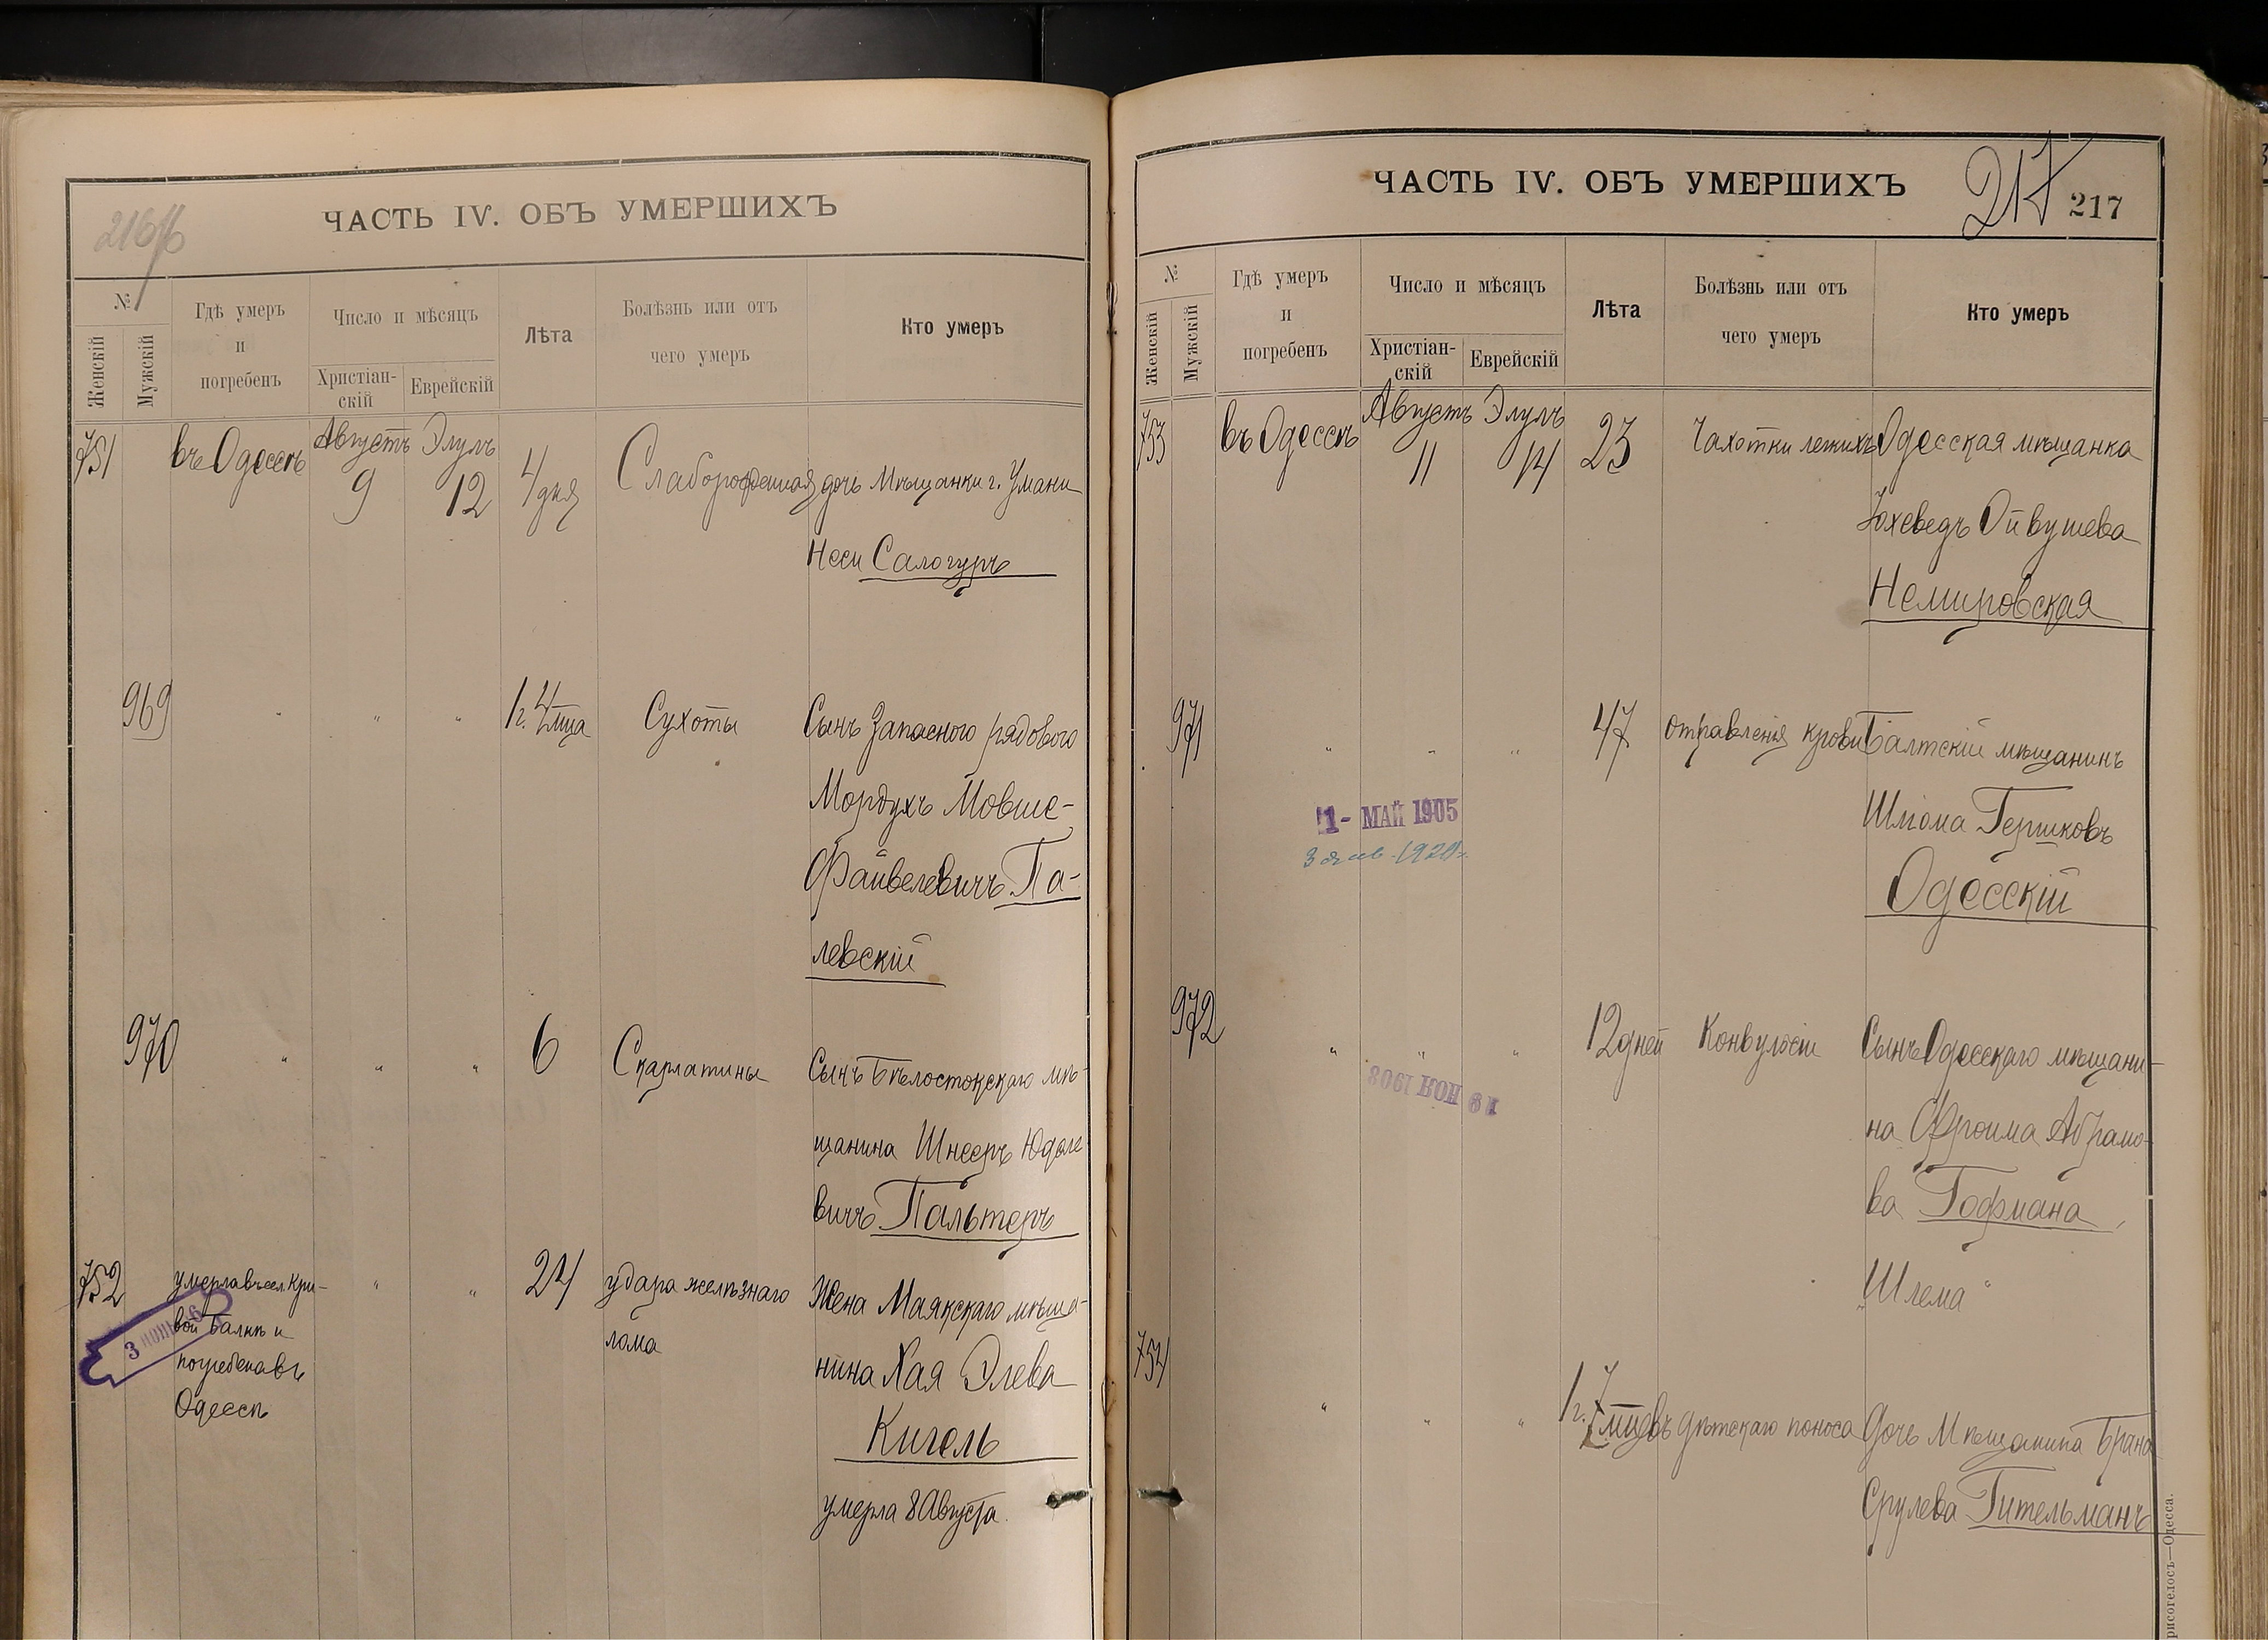 216 об
ЧАСТЬ IV. ОБЪ УМЕРШИХЪ
№
Женскій
Мужскій
Гдѣ умеръ
и
погребенъ
Число и мѣсяцъ
Христіан-
скій
Еврейскій
Лѣта
Болѣзнь или отъ
чего умеръ
Кто умеръ
751
въ Одессѣ
Августъ
9
Элулъ
12
4
дня
Слаборожденная
дочь Мѣщанки г. Умани
Неси Салогуръ
969
" " "
1 г. 4 мца
Сухоты
Сынъ Запасного рядового
Мордухъ Мовше-
Файвелевичъ Па-
левскій
970
" " "
6
Скарлатины
Сынъ Бѣлостокскаго мѣ-
щанина Шнееръ Юделе
вичъ Пальтеръ
752
умерла въ сел. Кри-
вой Балкѣ и
погребена въ
Одессѣ
" "
24
удара желѣзнаго
лома
Жена Маякскаго мѣща-
нина Хая Элева
Кигель
умерла 8 Августа.
ЧАСТЬ IV. ОБЪ УМЕРШИХЪ
217
217
№
Женскій
Мужскій
Гдѣ умеръ
и
погребенъ
Число и мѣсяцъ
Христіан-
скій
Еврейскій
Лѣта
Болѣзнь или отъ
чего умеръ
Кто умеръ
753
въ Одессѣ
Августъ
11
Элулъ
14
23
Чахотки легкихъ
Одесская мѣщанка
Іохеведъ Ойвушева
Немировская
971
" " "
47
отравленія крови
Балтскій мѣщанинъ
Шліома Гершковъ
Одесскій
1 - МАЙ 1905
3 янв. 1920 г.
972
" " "
12 дней
Конвульсіи
Сынъ Одесскаго мѣщани-
на Фроима Абрамо-
ва Гофмана,
"Шлема"
19 НОЯ 1908
754
" " "
1 г. 7 мцевъ
дѣтскаго поноса
Дочь Мѣщанина Брана
Срулева Гительманъ
—Одесса.